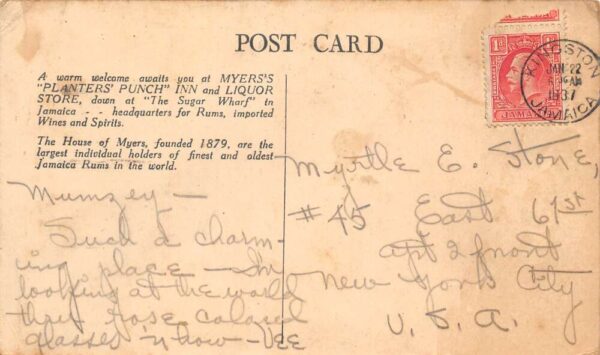 POST CARD
A warm welcome awaits you at MYERS'S
"PLANTERS' PUNCH" INN and LIQUOR
STORE, down at "The Sugar Wharf" in
Jamaica - - headquarters for Rums, imported
Wines and Spirits.
The House of Myers, founded 1879, are the
largest individual holders of finest and oldest
Jamaica Rums in the world.
Mumzey—
Such a charm-
ing place — Im
looking at the world
thru rose colored
glasses 'n how — Dee
1D
JAMAICA
KINGSTON
JAN 22
1937
JAMAICA
Myrtle E. Stone,
#45 East 61st
apt 2 front
New York City
U. S. A.